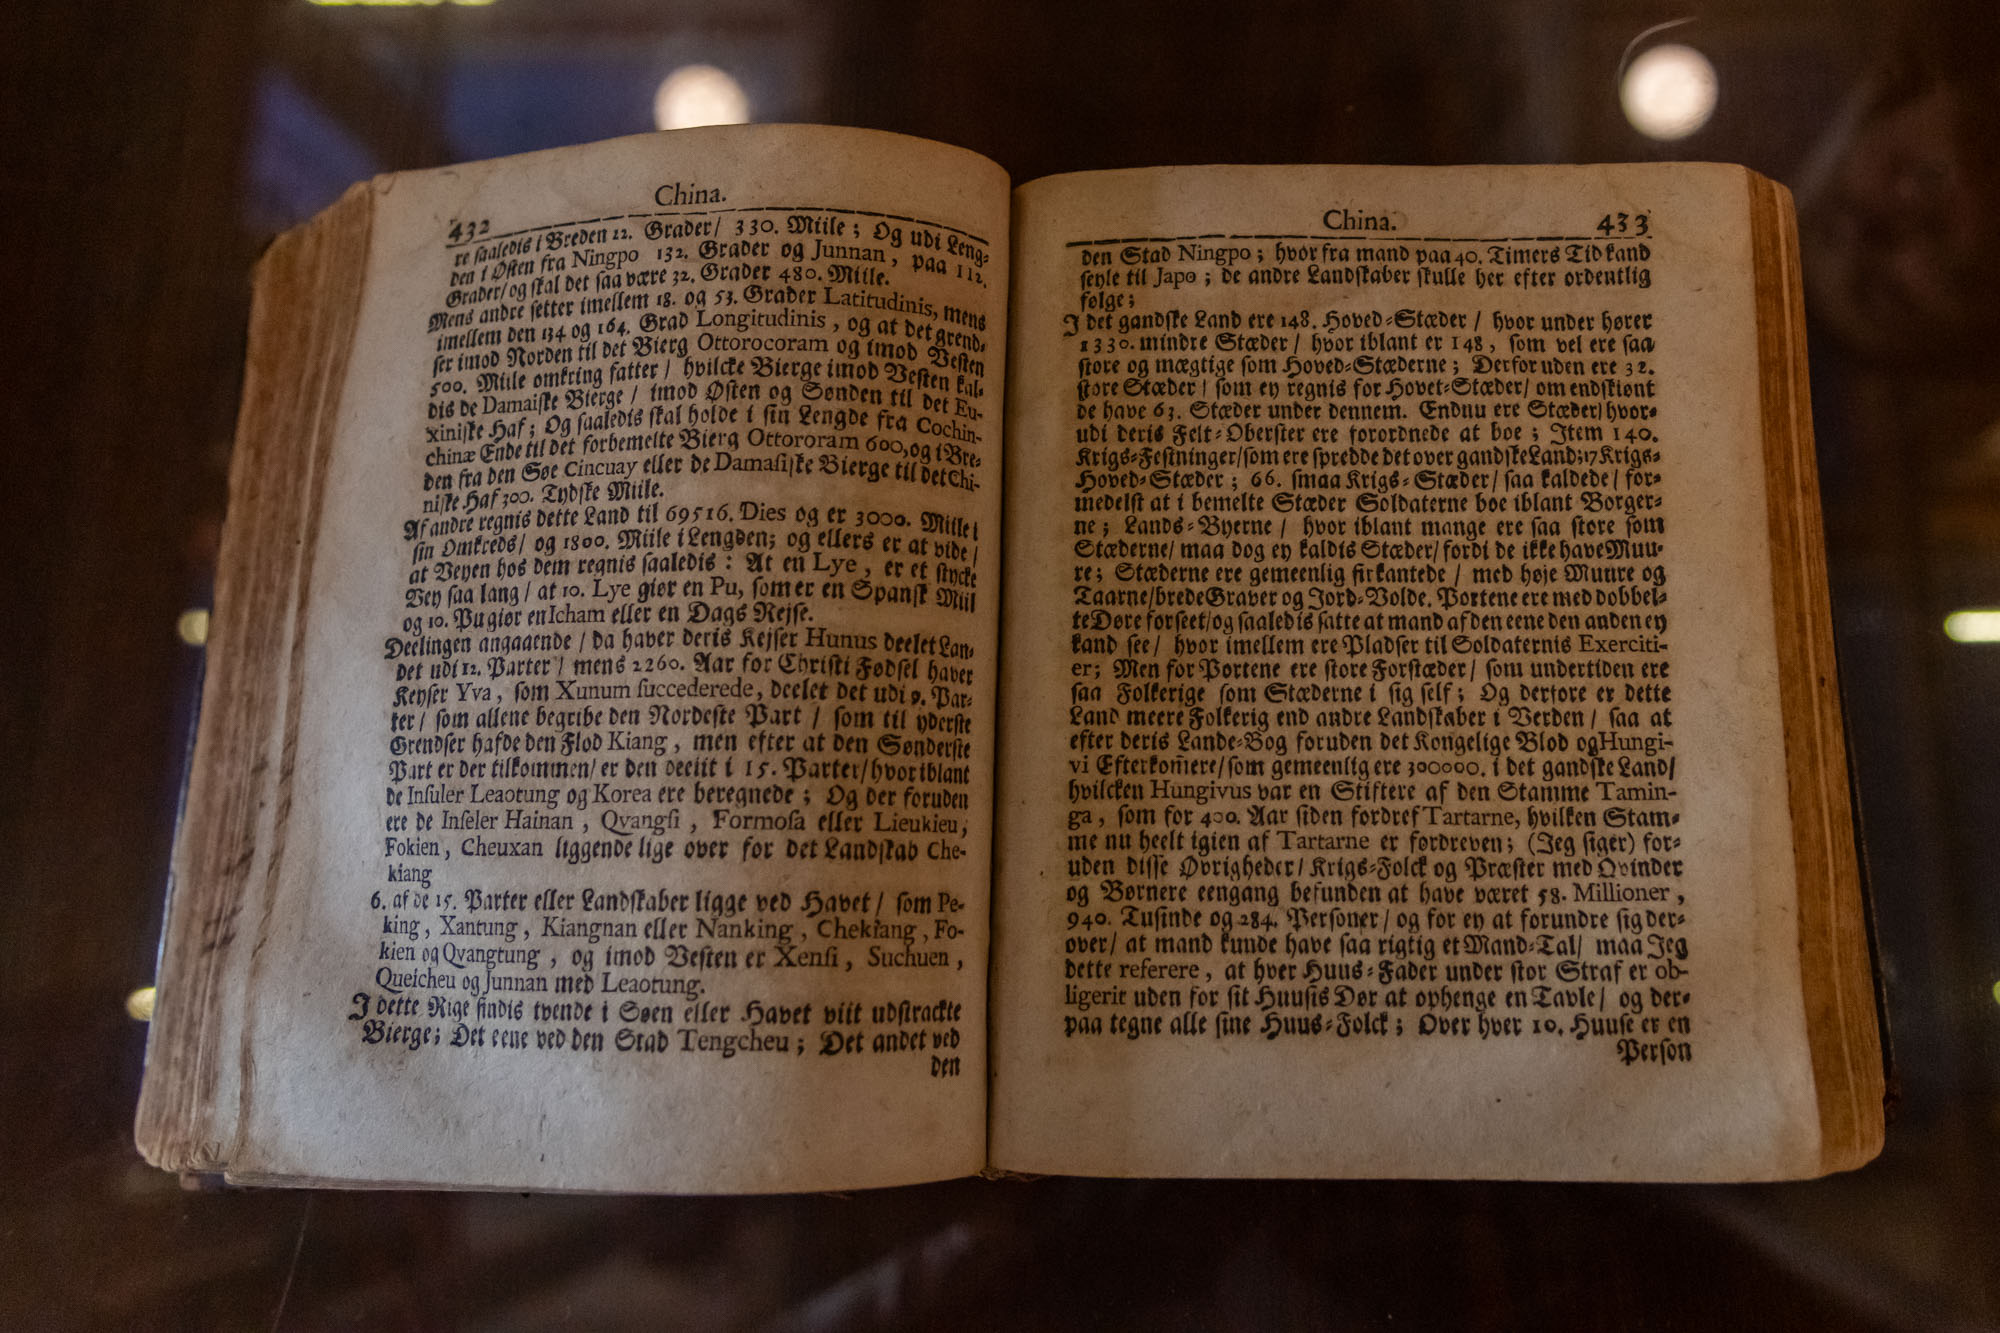 432
China.
re saaledis i Breden 12. Grader/ 330. Miile; Og udi Leng-
den i Østen fra Ningpo 132. Grader og Junnan, paa 112.
Grader/ og skal det saa være 32. Grader 480. Miile.
Mens andre setter imellem 18. og 53. Grader Latitudinis, mens
imellem den 134 og 164. Grad Longitudinis, og at det grend-
ser imod Norden til det Bierg Ottorocoram og imod Vesten
500. Miile omkring fatter/ hvilcke Bierge imod Vesten kal-
dis de Damaiske Bierge/ imod Østen og Sønden til det Eu-
xiniske Haf; Og saaledis skal holde i sin Lengde fra Cochin-
chinæ Ende til det forbemelte Bierg Ottororam 600, og i Bre-
den fra den Søe Cincuay eller de Damasiske Bierge til det Chi-
niske Haf 300. Tydske Miile.
Af andre regnis dette Land til 69516. Dies og er 3000. Miile i
sin Omkreds/ og 1800. Miile i Lengden; og ellers er at vide/
at Veyen hos dem regnis saaledis: At en Lye, er et stycke
Vey saa lang/ at 10. Lye giør en Pu, som er en Spansk Miil
og 10. Pu giør en Icham eller en Dags Rejse.
Deelingen angaaende/ da haver deris Kejser Hunus deelet Lan-
det udi 12. Parter/ mens 2260. Aar for Christi Fødsel haver
Keyser Yva, som Xunum succederede, deelet det udi 9. Par-
ter/ som allene begribe den Nordeste Part/ som til yderste
Grendser hafde den Flod Kiang, men efter at den Sønderste
Part er der tilkommen/ er den deelit i 15. Parter/ hvor iblant
de Insuler Leaotung og Korea ere beregnede; Og der foruden
ere de Inseler Hainan, Qvangsi, Formosa eller Lieukieu,
Fokien, Cheuxan liggende lige over for det Landskab Che-
kiang
6. af de 15. Parter eller Landskaber ligge ved Havet/ som Pe-
king, Xantung, Kiangnan eller Nanking, Chekiang, Fo-
kien og Qvangtung, og imod Vesten er Xensi, Suchuen,
Queicheu og Junnan med Leaotung.
I dette Rige findis tvende i Søen eller Havet viit udstrackte
Bierge; Det eene ved den Stad Tengcheu; Det andet ved
den
China.
433
den Stad Ningpo; hvor fra mand paa 40. Timers Tid kand
seyle til Japo; de andre Landskaber skulle her efter ordentlig
følge;
I det gandske Land ere 148. Hoved-Stæder/ hvor under hører
1330. mindre Stæder/ hvor iblant er 148, som vel ere saa
store og mægtige som Hoved-Stæderne; Derfor uden ere 32.
store Stæder/ som ey regnis for Hovet-Stæder/ om endskiønt
de have 63. Stæder under dennem. Endnu ere Stæder/ hvor-
udi deris Felt-Oberster ere forordnede at boe; Item 140.
Krigs-Festninger/ som ere spredde det over gandske Land; 17 Krigs-
Hoved-Stæder; 66. smaa Krigs-Stæder/ saa kaldede/ for-
medelst at i bemelte Stæder Soldaterne boe iblant Borger-
ne; Lands-Byerne/ hvor iblant mange ere saa store som
Stæderne/ maa dog ey kaldis Stæder/ fordi de ikke have Muu-
re; Stæderne ere gemeenlig firkantede/ med høje Muure og
Taarne/ brede Graver og Jord-Volde. Portene ere med dobbel-
te Døre forseet/ og saaledis satte at mand af den eene den anden ey
kand see/ hvor imellem ere Pladser til Soldaternis Exerciti-
er; Men for Portene ere store Forstæder/ som undertiden ere
saa Folkerige som Stæderne i sig self; Og derfore er dette
Land meere Folkerig end andre Landskaber i Verden/ saa at
efter deris Lande-Bog foruden det Kongelige Blod og Hungi-
vi Efterkom̃ere/ som gemeenlig ere 300000. i det gandske Land/
hvilcken Hungivus var en Stiftere af den Stamme Tamin-
ga, som for 400. Aar siden fordref Tartarne, hvilken Stam-
me nu heelt igien af Tartarne er fordreven; (Jeg siger) for-
uden disse Øvrigheder/ Krigs-Folck og Præster med Qvinder
og Børnere eengang befunden at have været 58. Millioner,
940. Tusinde og 284. Personer/ og for ey at forundre sig der-
over/ at mand kunde have saa rigtig et Mand-Tal/ maa Jeg
dette referere, at hver Huus-Fader under stor Straf er ob-
ligerit uden for sit Huusis Dør at ophenge en Tavle/ og der-
paa tegne alle sine Huus-Folck; Over hver 10. Huuse er en
Person